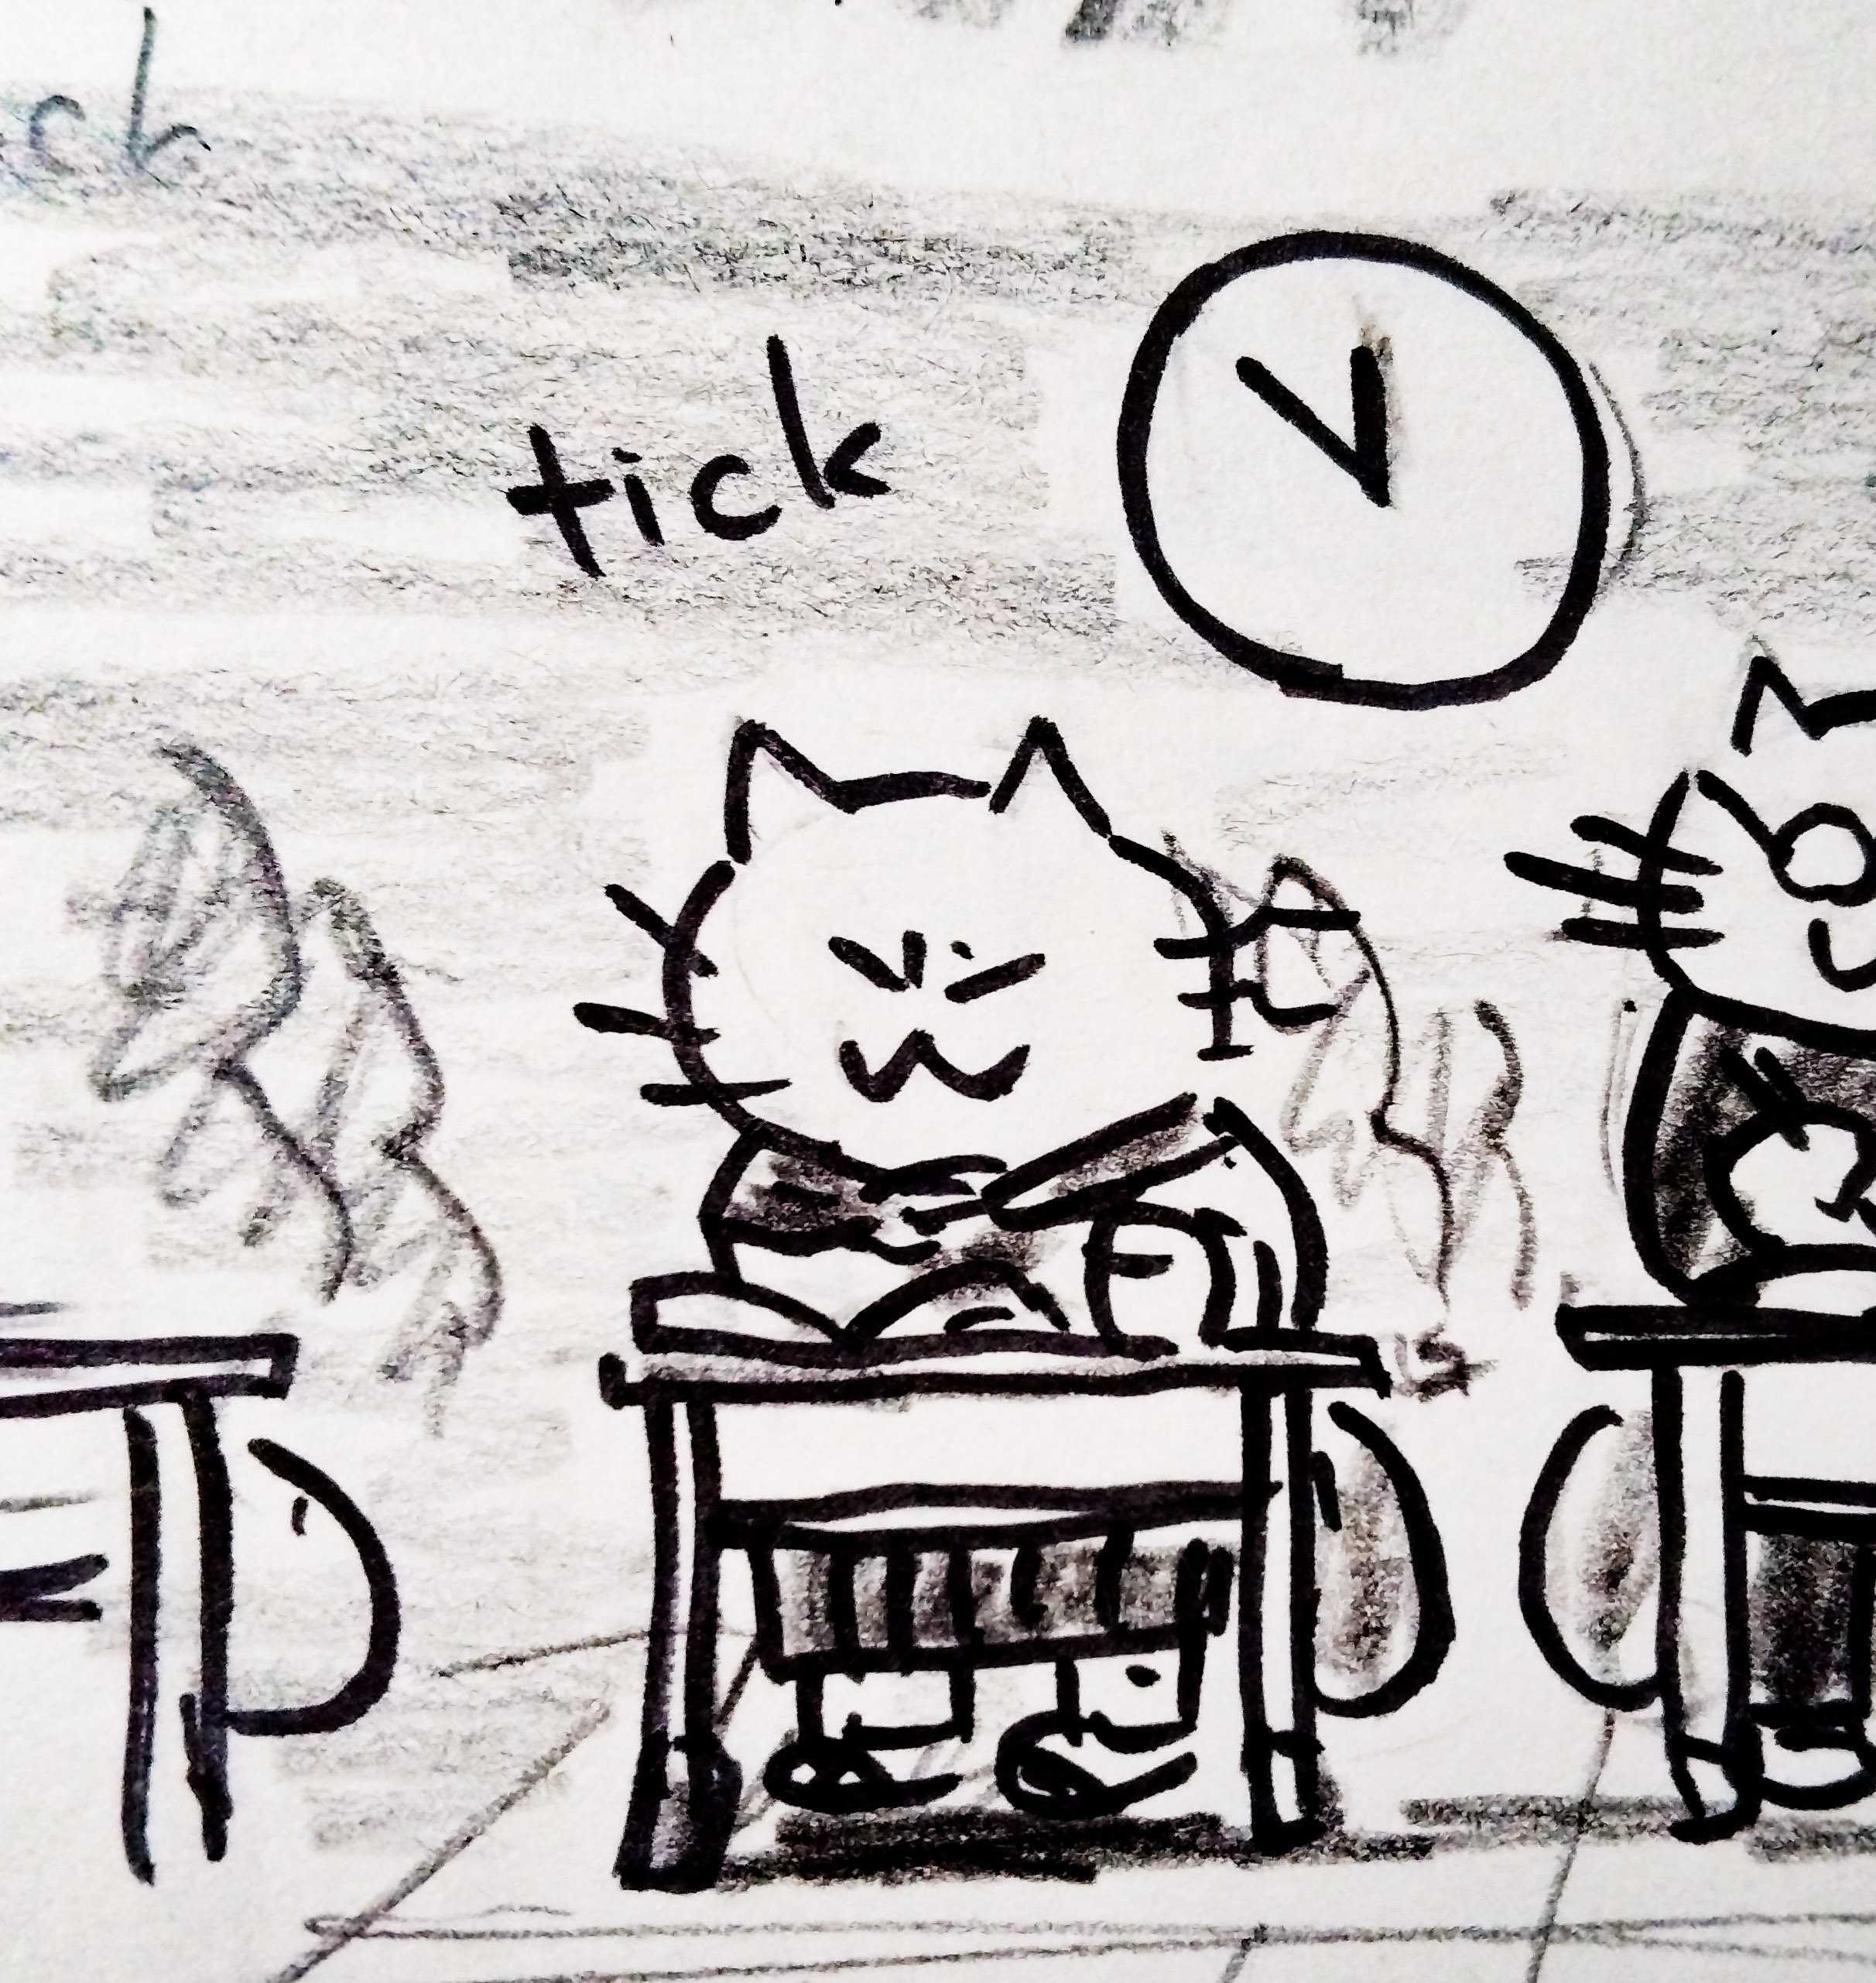 ck
tick